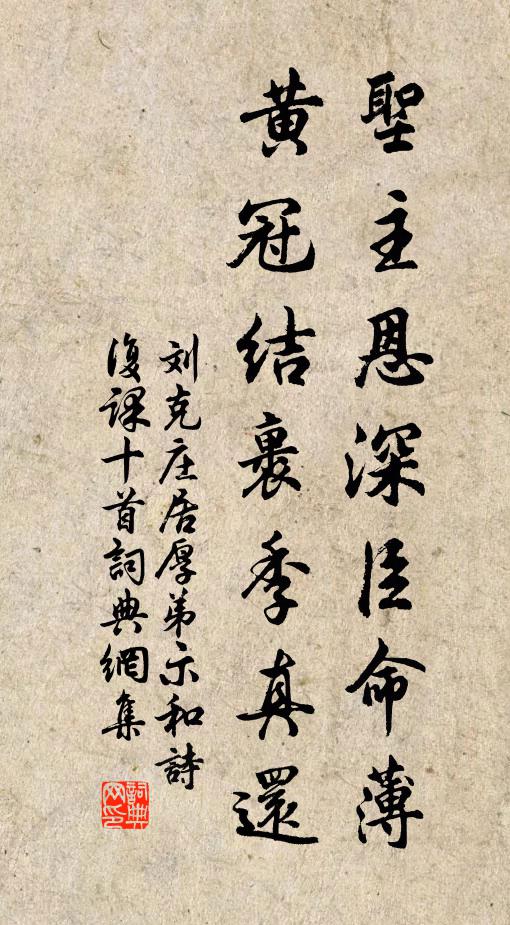 聖主恩深臣命薄
黃冠結裹季真還
刘克庄居厚弟示和詩
復課十首詞典網集
詞典网印